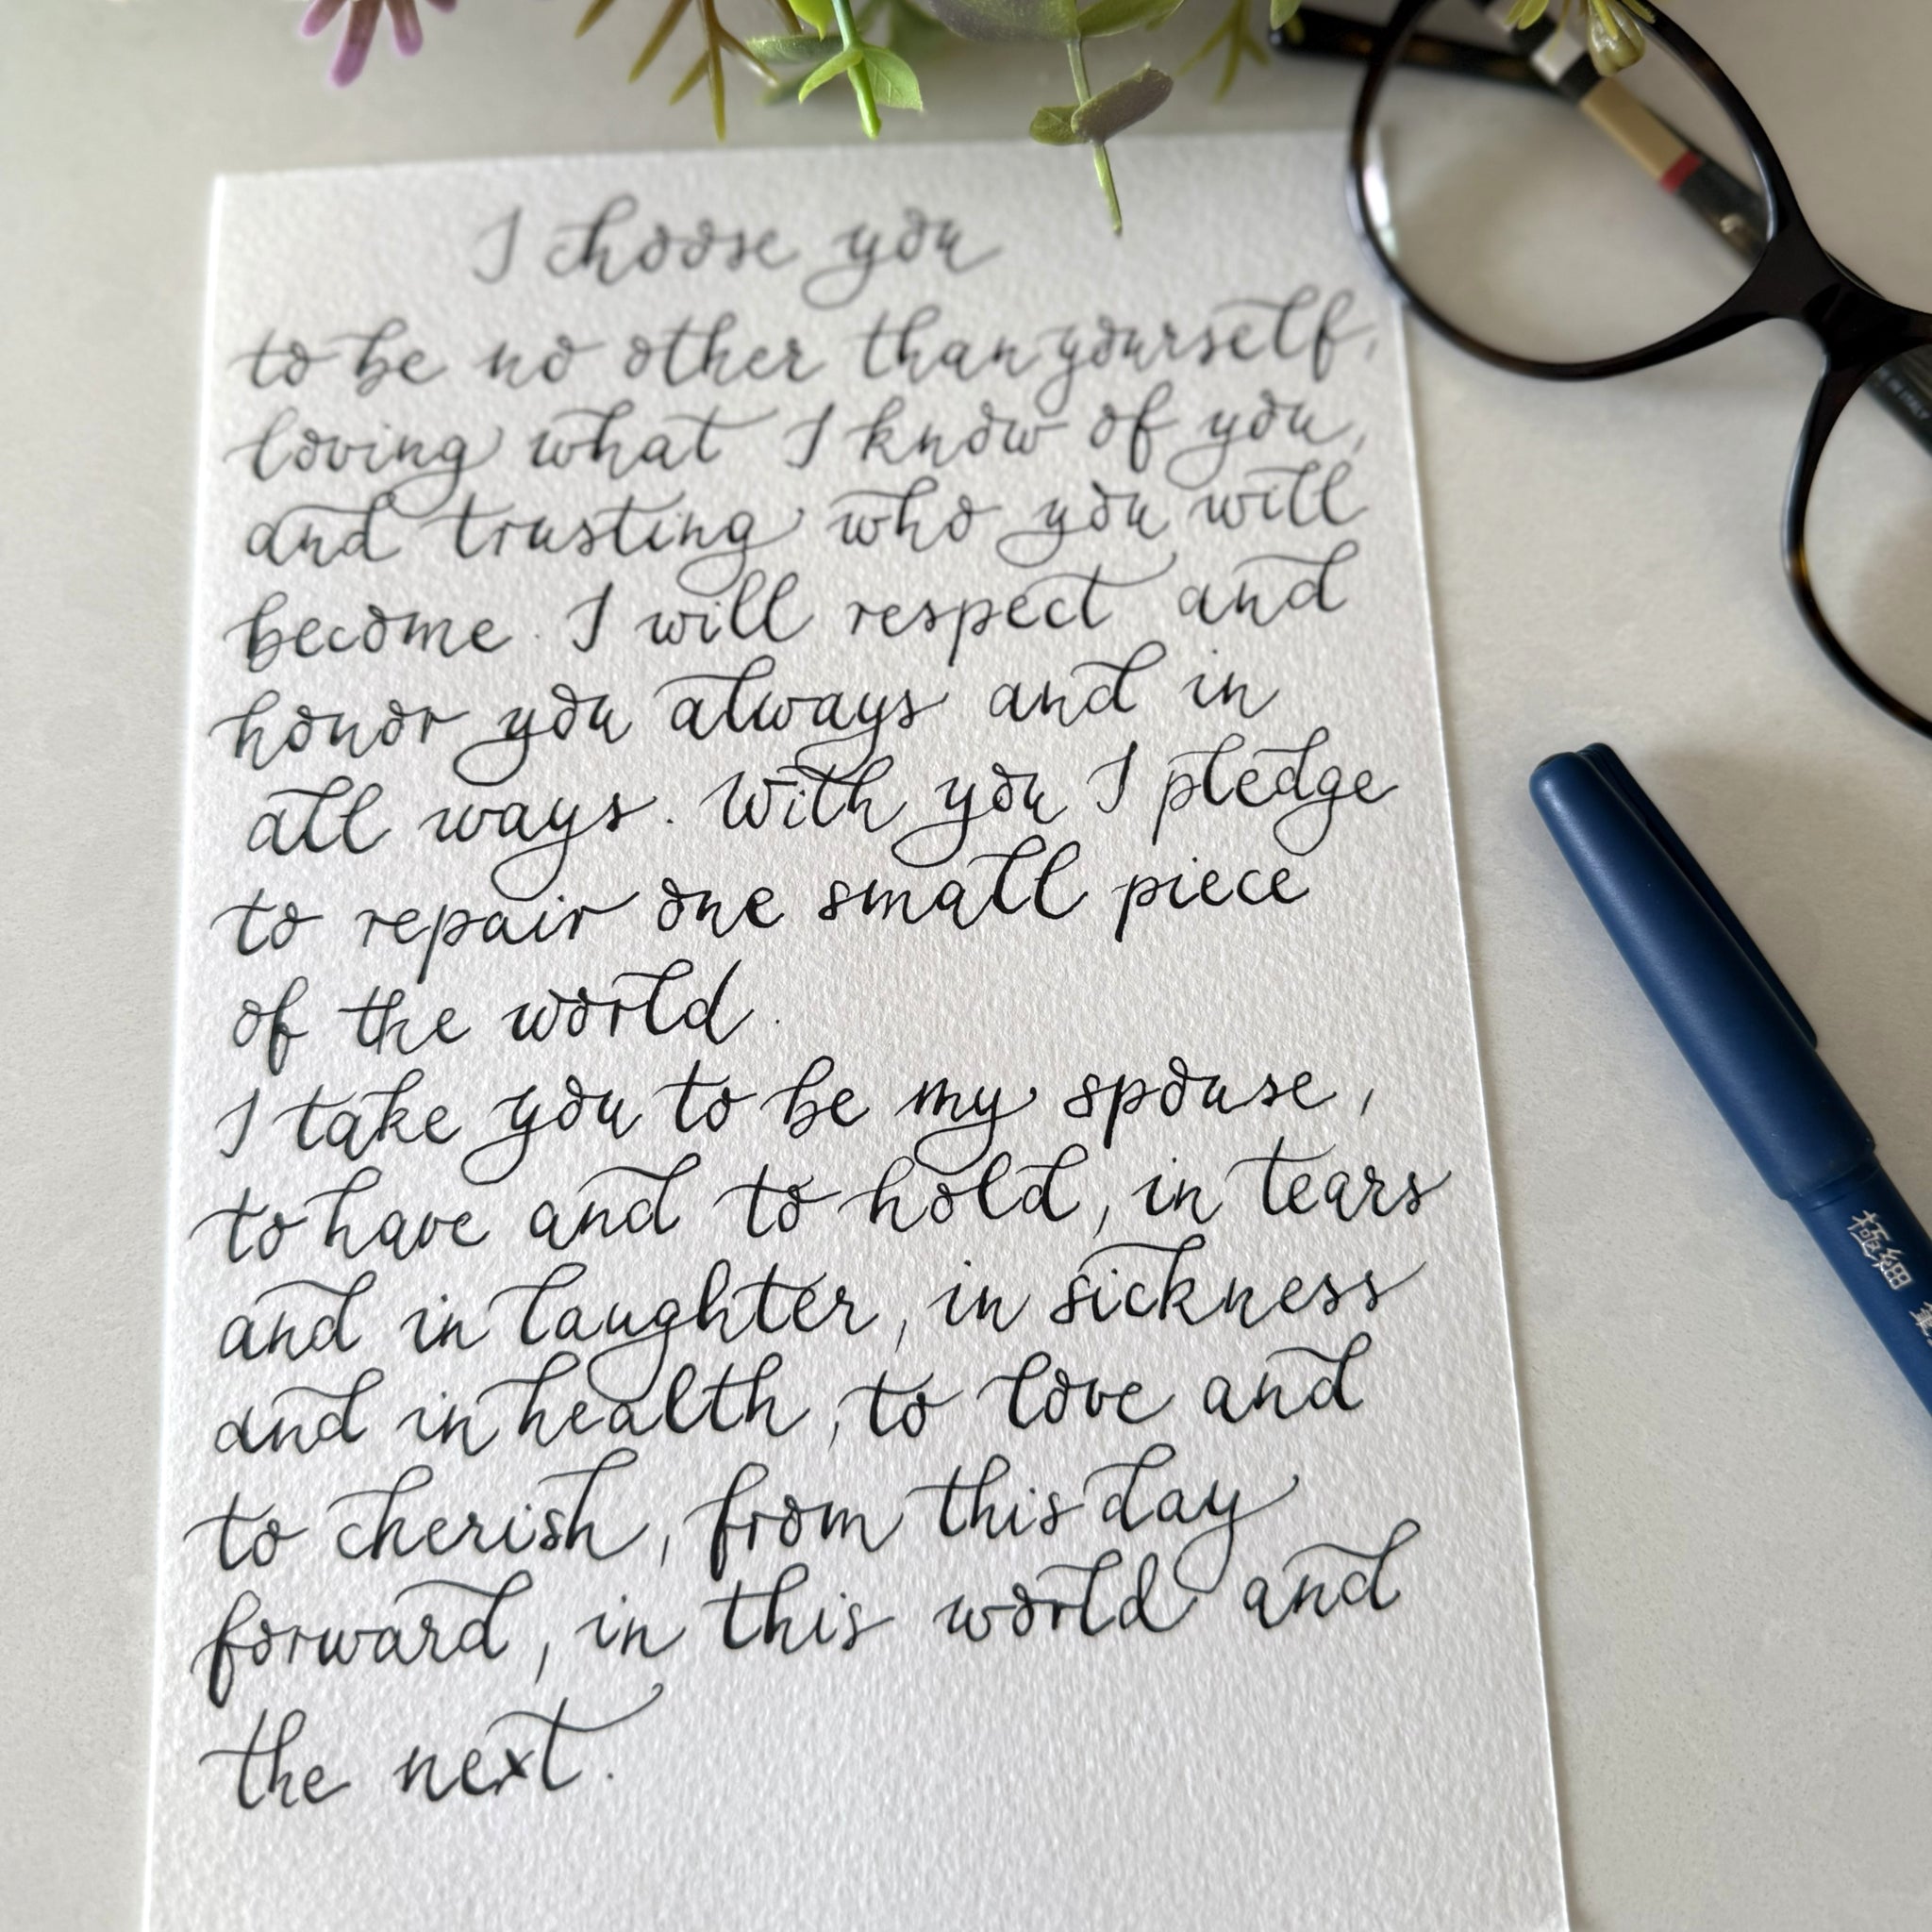 I choose you
to be no other than yourself,
loving what I know of you,
and trusting who you will
become. I will respect and
honor you always and in
all ways. With you I pledge
to repair one small piece
of the world.
I take you to be my spouse,
to have and to hold, in tears
and in laughter, in sickness
and in health, to love and
to cherish, from this day
forward, in this world and
the next.
極細